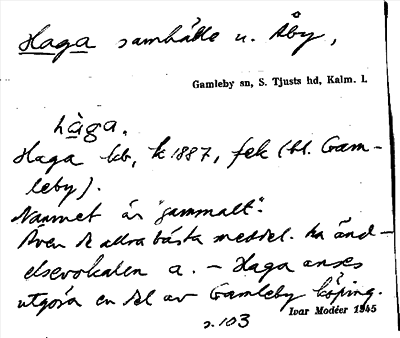 Haga samhälle u. Åby,
Gamleby sn, S. Tjusts hd, Kalm. l.
hàga.
Haga kb, k 1887, fek (bl. Gam-
leby).
Namnet är "gammalt".
Även de allra bästa meddel. ha änd-
elsevokalen a. – Haga anses
utgöra en del av Gamleby köping.
Ivar Modéer 1945
s. 103